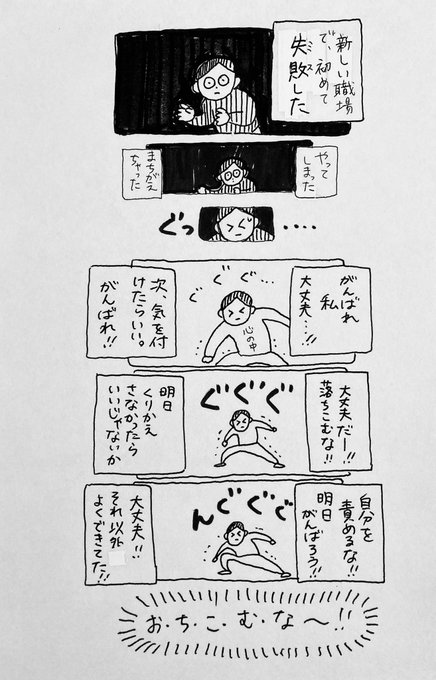 新しい職場
で、初めて
失敗した
ミス
やって
しまった
まちがえ
ちゃった
ぐっ
‥‥
がんばれ
私
大丈夫…!!
ぐぐぐ…
心の中
次、気を付
けたらいい。
がんばれ!!
大丈夫だー!!
落ちこむな!!
ぐぐぐぐ
明日
くりかえ
さなかったら
いいじゃないか
自分を
責めるな!!
明日
がんばろう!!
んぐぐぐ
大丈夫!!
それ以外
よくできてた!!
お・ち・こ・む・な〜!!